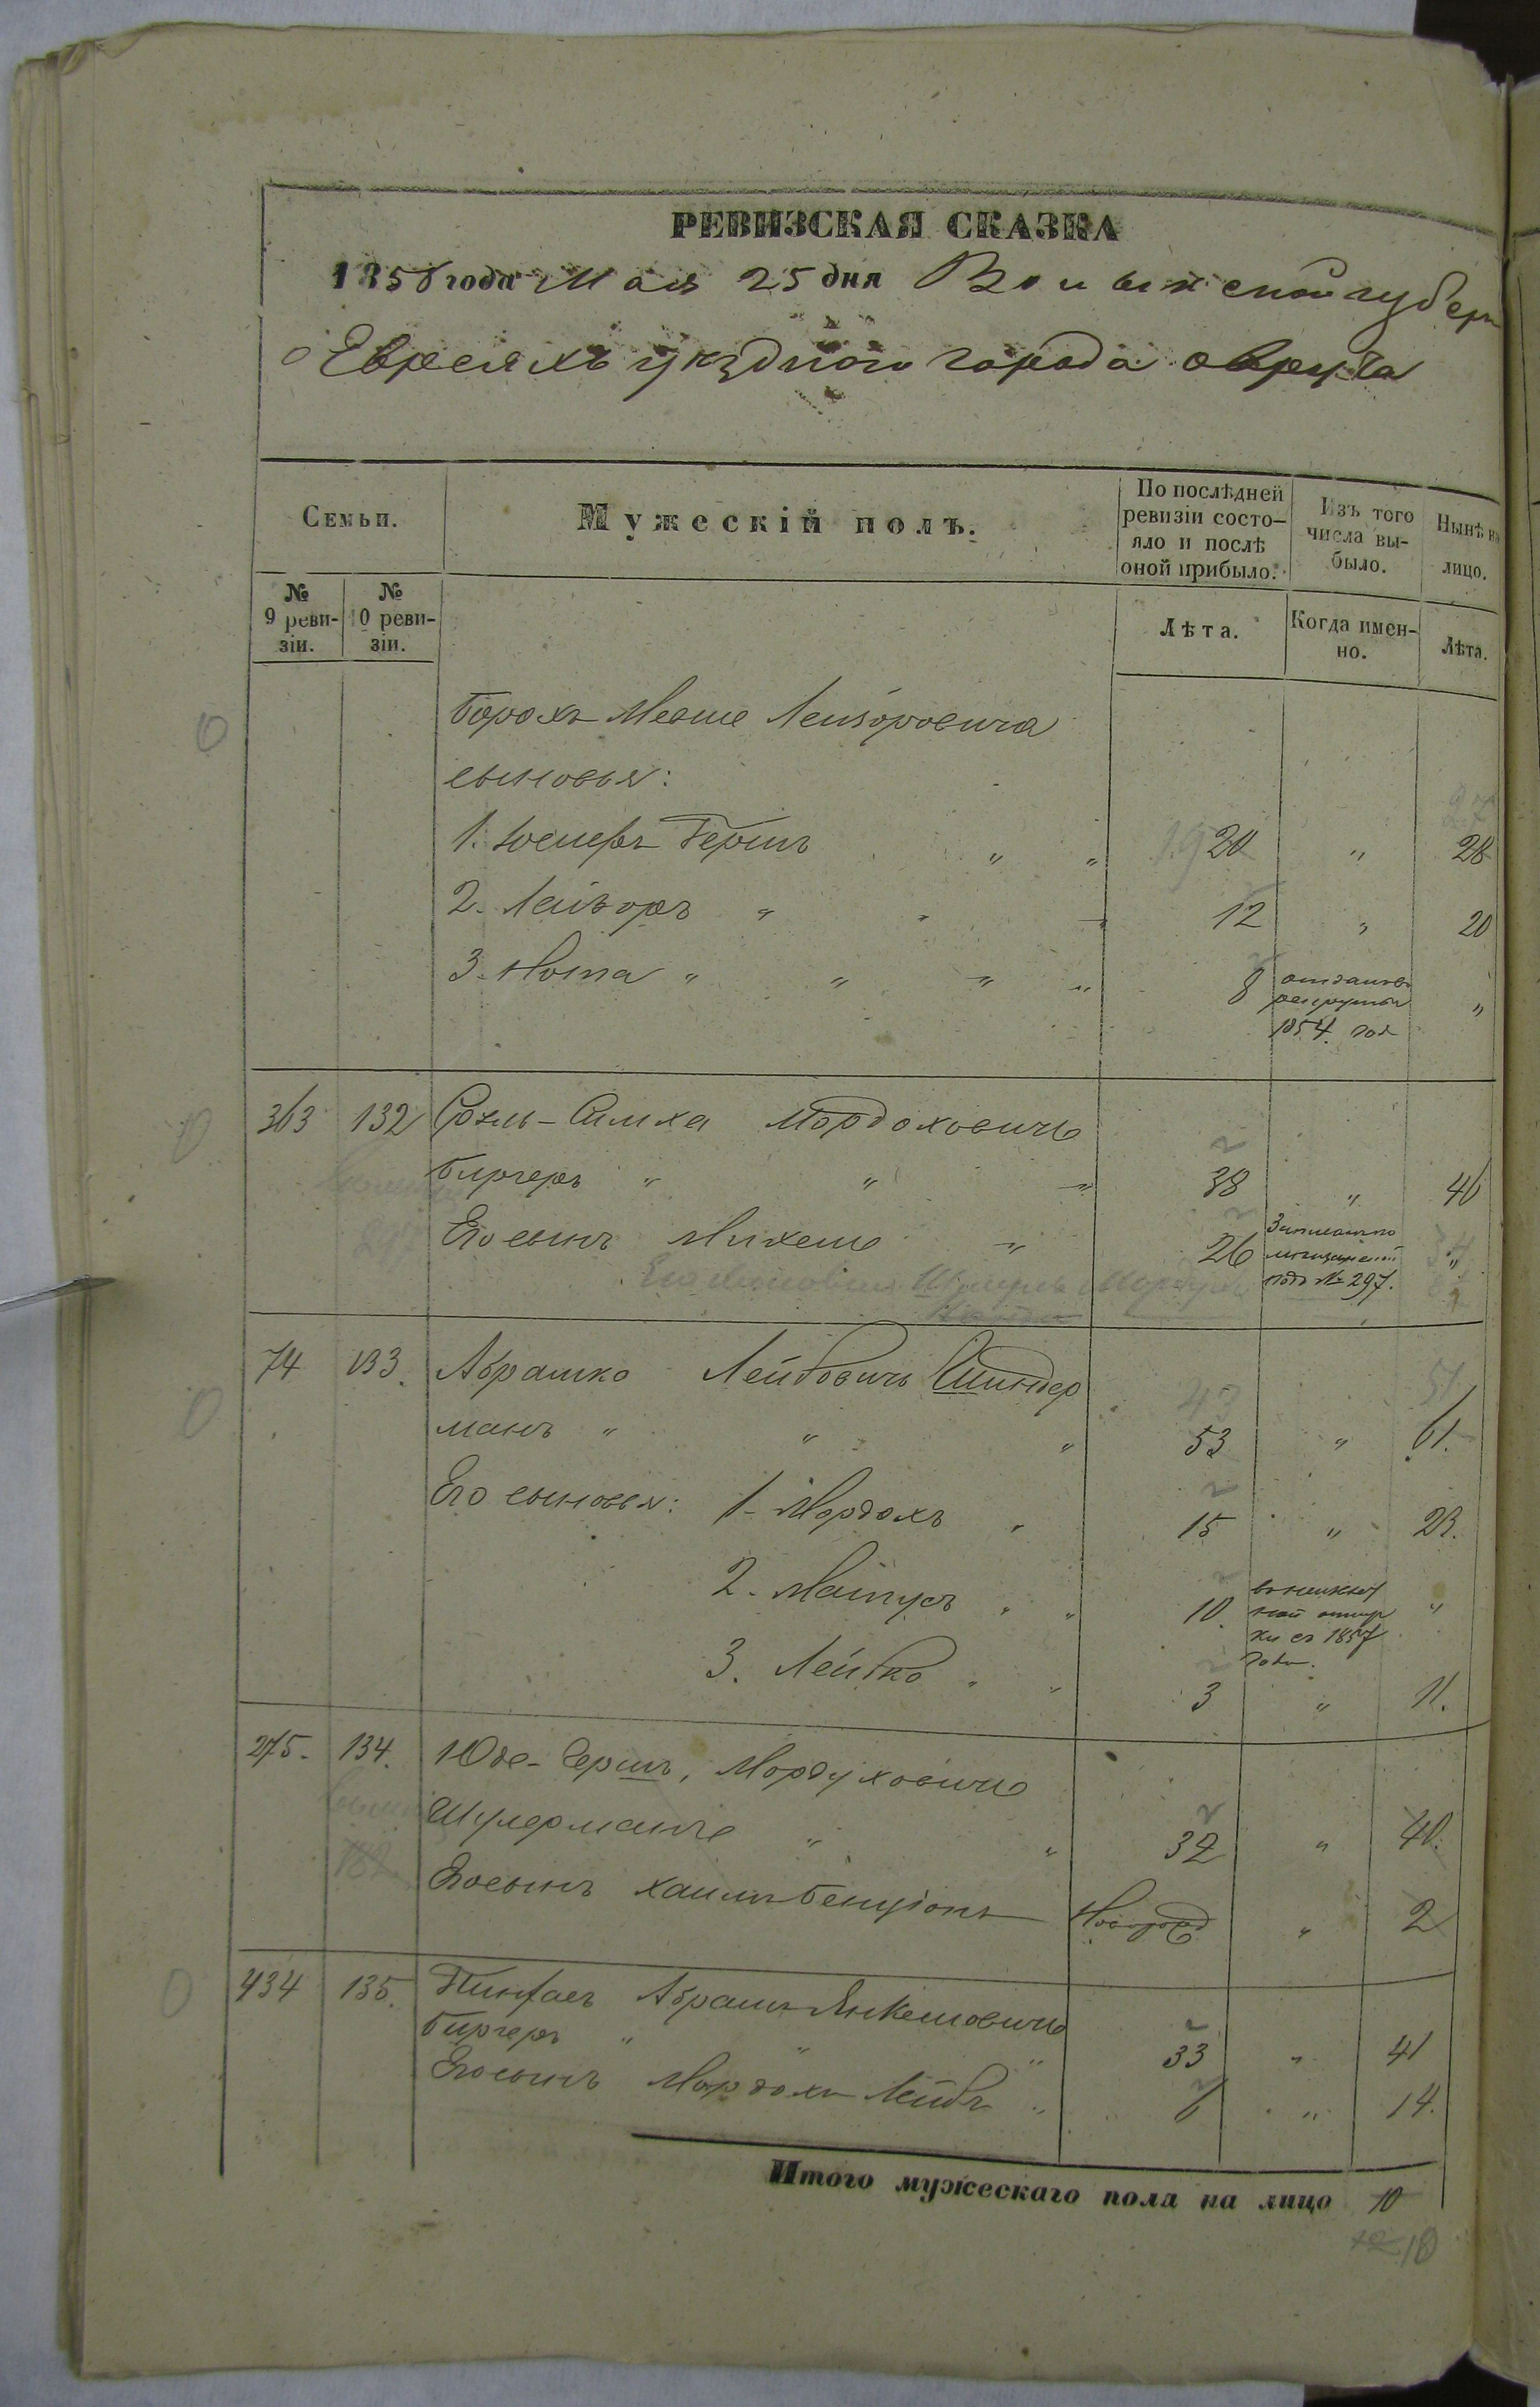 РЕВИЗСКАЯ СКАЗКА
1858 года Мая 25 дня Волынской губерн
О Евреяхъ уѣзднаго города овруча
Семьи.
Мужескій полъ.
По послѣдней ревизіи состо-
яло и послѣ оной прибыло.
Изъ того числа вы-
было.
Нынѣ на лицо.
№ 9 реви-
зіи.
№ 10 реви-
зіи.
Лѣта.
Когда имен-
но.
Лѣта.
Борохъ Мевше Лейзоровича
сыновья:
1. Юсифъ Гершъ " " 19 20 " 27 28
2. Лейзоръ " " " 12 " 20
3. Нота " " " " 8 отданъ въ рекруты 1854 год "
363 132 Сроль-Симха Мордоховичъ
Биргеръ " " " 38 " 46
Его сынъ Михель " 26 Записанъ по мещанской подъ № 297. "
297
74 133. Абрашко Лейбовичъ Шиндер
43 51
манъ " " " 53 " 61.
Его сыновья: 1. Мордохъ " 15 " 23.
2. Матусъ " " 10. въ неизвѣст
ной отлуч
ки съ 1857
года. "
3. Лейбко " " 3 " 11.
275. 134. Юдс-Гершъ, Мордуховичъ
Шулерманъ " " 32 " 40.
182
Его сынъ Хаимъ Бенціонъ Новорожд " 2
434 135. Пинхасъ Абрамъ Янкелевичъ
Биргеръ " " " 33 " 41
Его сынъ Мордохъ Лейбъ " 6 " 14.
Итого мужескаго пола на лицо 10
10